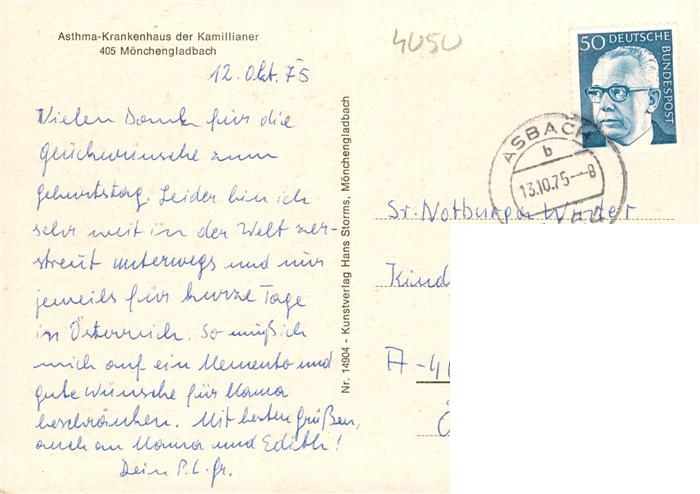 Asthma-Krankenhaus der Kamillianer
405 Mönchengladbach
12. Okt. 75
Vielen Dank für die
Glückwünsche zum
Geburtstag. Leider bin ich
sehr weit in der Welt zer-
streut unterwegs und nur
jeweils für kurze Tage
in Österreich. So muß ich
mich auf ein Memento und
gute Wünsche für Mama
beschränken. Mit besten Grüßen,
auch an Mama und Edith!
Dein P.L.Gr.
Nr. 14904 - Kunstverlag Hans Storms, Mönchengladbach
4050
50 DEUTSCHE
BUNDESPOST
ASBACH
b
13.10.75-8
Sr. Notburga
Kind
A-
Ö